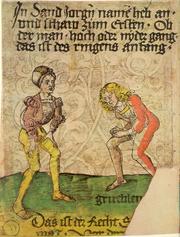 In Sand Jorgen name heb an ·
vnd schaw zum Ersten · Ob
der man · hoch oder nyder gang
das ist des ringens anfang ·
Das ist der Recht